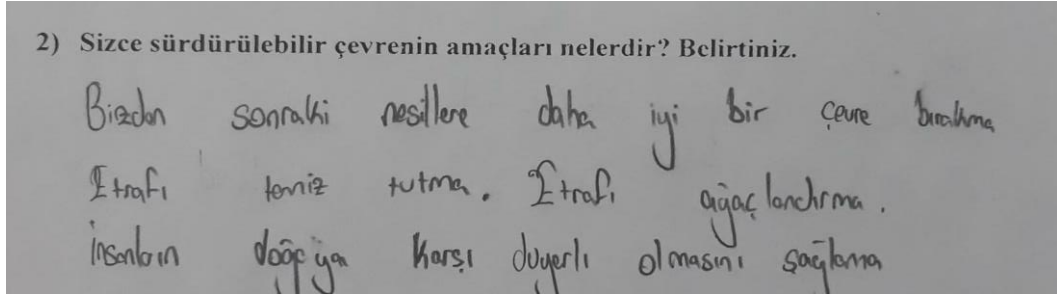 2) Sizce sürdürülebilir çevrenin amaçları nelerdir? Belirtiniz.
Bizden sonraki nesillere daha iyi bir çevre bırakma
Etrafı temiz tutma. Etrafı ağaçlandırma.
İnsanların doğaya karşı duyarlı olmasını sağlama